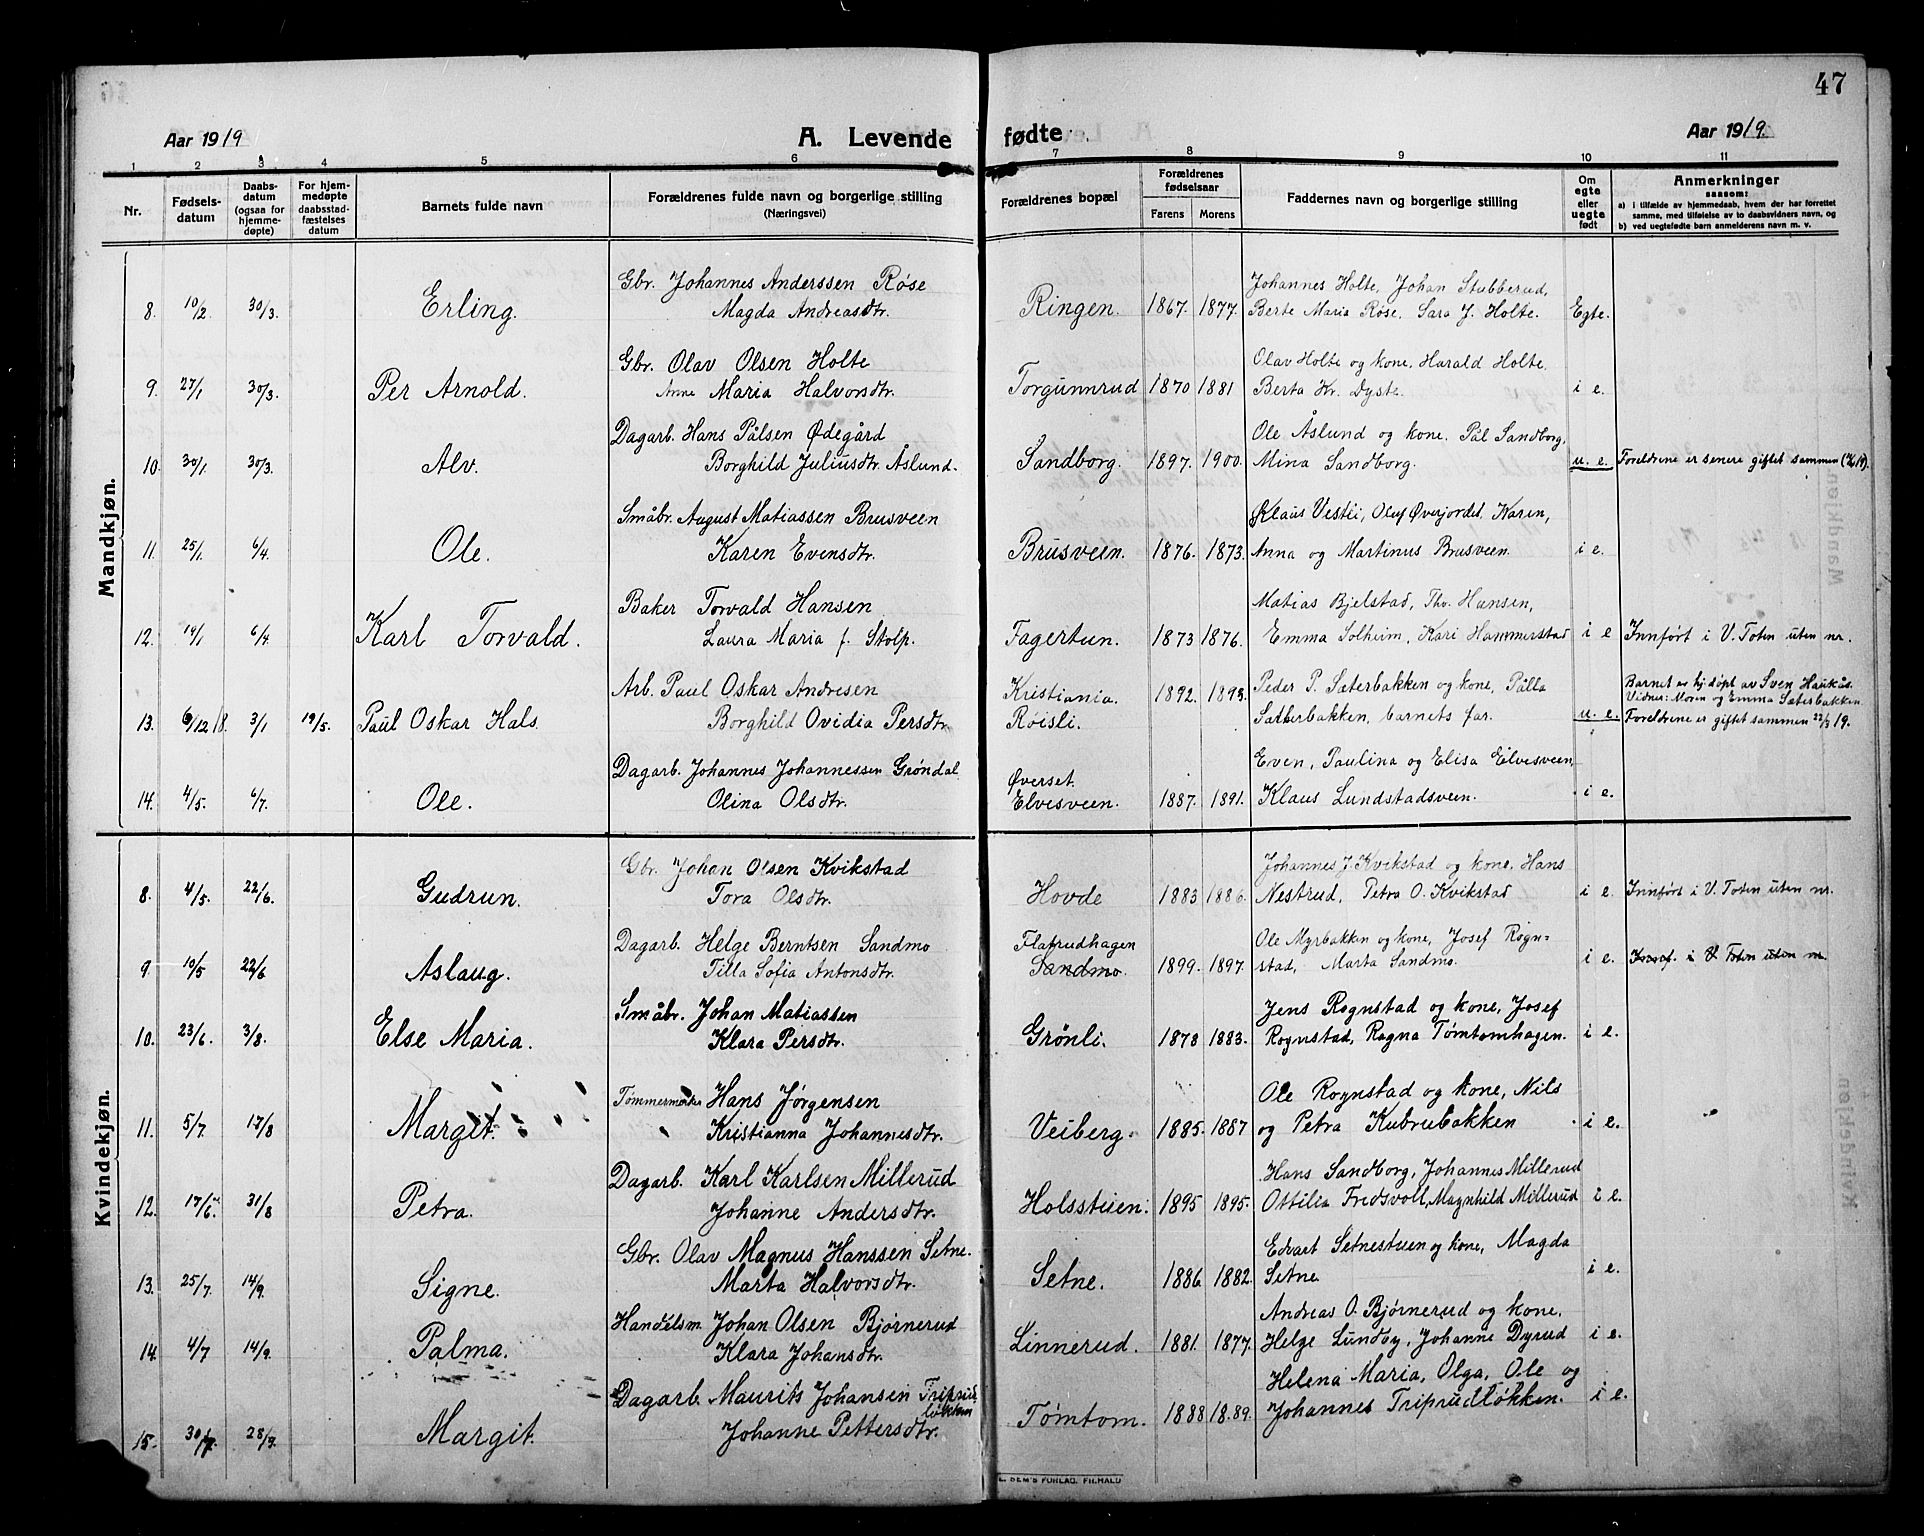 47
Aar 1919
A. Levende fødte.
Aar 1919.
1 2 3 4 5 6 7 8 9 10 11
Nr.
Fødsels-
datum
Daabs-
datum
(ogsaa for
hjemme-
døpte)
For hjem-
medøpte
daabsstad-
fæstelses
datum
Barnets fulde navn
Forældrenes fulde navn og borgerlige stilling
(Næringsvei)
Forældrenes bopæl
Forældrenes
fødselsaar
Farens Morens
Faddernes navn og borgerlige stilling
Om
egte
eller
uegte
født
Anmerkninger
saasom:
a) i tilfælde av hjemmedaab, hvem der har forrettet
samme, med tilføielse av to daabsvidners navn, og
b) ved uegtefødte barn anmelderens navn m. v.
Mandkjøn.
Gbr. Johannes Anderssen Røse Johannes Holte, Johan Stubberud,
8. 10/2 30/3. Erling. Magda Andreasdtr. Ringen. 1867. 1877. Berte Maria Røse. Sara J. Holte. Egte.
Gbr. Olav Olsen Holte Olav Holte og kone, Harald Holte.
9. 27/1 30/3. Per Arnold. Anne Maria Halvorsdtr. Torgunnrud 1870 1881 Berta Kr. Dyste. i e.
Dagarb. Hans Pålsen Ødegård Ole Åslund og kone. Pål Sandborg,
10. 30/1. 30/3. Alv. Borghild Juliusdtr. Åslund. Sandborg. 1897. 1900. Mina Sandborg. u. e. Foreldrene er senere giftet sammen
Småbr. August Matiassen Brusveen Klaus Vestli, Oluf Øverjordet, Karen,
11. 25/1. 6/4. Ole. Karen Evensdtr. Brusveen. 1876. 1873. Anna og Martinus Brusveen. i e.
Baker Torvald Hansen Matias Bjelstad, Thv. Hansen,
12. 19/1 6/4. Karl Torvald. Laura Maria f. Stolp. Fagertun. 1873 1876. Emma Solheim, Kari Hammerstad i e Innført i V. Toten uten nr.
Arb. Paul Oskar Andresen Kristiania 1892. 1893. Peder P. Sæterbakken og kone, Pålla Barnet er hj.døpt av Sven Haukås.
Vidner: Moren og Emma Sæterbakken
13. 6/12 18. 3/1 19/5. Paul Oskar Hals Borghild Ovidia Persdtr. Røisli. Sæterbakken, barnets far. u. e. Foreldrene er giftet sammen 22/3 19.
Dagarb. Johannes Johannessen Grøndal Øverset Even, Paulina og Elisa Elvesveen,
14. 4/5. 6/7. Ole. Olina Olsdtr. Elvesveen. 1887. 1891. Klaus Lundstadsveen. i e.
Kvindekjøn.
Gbr. Johan Olsen Kvikstad Johannes J. Kvikstad og kone, Hans
8. 4/5. 22/6. Gudrun. Tora Olsdtr. Hovde 1883 1886. Nestrud, Petra O. Kvikstad i e. Innført i V. Toten uten nr.
Dagarb. Helge Berntsen Sandmo Flatrudhagen Ole Myrbakken og kone, Josef Rogn-
9. 19/5 22/6 Aslaug. Tilla Sofia Antonsdtr. Sandmo. 1899. 1897. stad, Marta Sandmo. i e. i V. Toten uten nr.
Småbr. Johan Matiassen Jens Rognstad og kone, Josef
10. 23/6. 3/8. Else Maria. Klara Persdtr. Grønli. 1878 1883. Rognstad, Ragna Tømtomhagen. i e.
Tømmermerker Hans Jørgensen Ole Rognstad og kone, Nils
11. 5/7. 17/8 Margit. Kristianna Johannesdtr. Veiberg. 1885. 1887 og Petra Kubrubakken i e.
Dagarb. Karl Karlsen Millerud Hans Sandborg, Johannes Millerud
12. 17/6. 31/8 Petra. Johanne Andersdtr. Holsstuen. 1895 1895. Ottilia Fredsvoll, Magnhild Millerud i e.
Gbr. Olav Magnus Hanssen Setne. Edvart Setnestuen og kone, Magda
13. 25/7. 14/9. Signe. Marta Halvorsdtr. Setne. 1886 1882. Setne. i e.
Handelsm. Johan Olsen Bjørnerud Andreas O. Bjørnerud og kone.
14. 4/7 14/9. Palma. Klara Johansdtr. Linnerud. 1881. 1877. Helge Lundby, Johanne Dyrud i e.
Dagarb. Maurits Johansen Triprud- Helena Maria, Olga, Ole og
løkken
15. 30/7. 28/9. Margit. Johanne Pettersdtr. Tømtom. 1888 1889. Johannes Triprudløkken. i e.